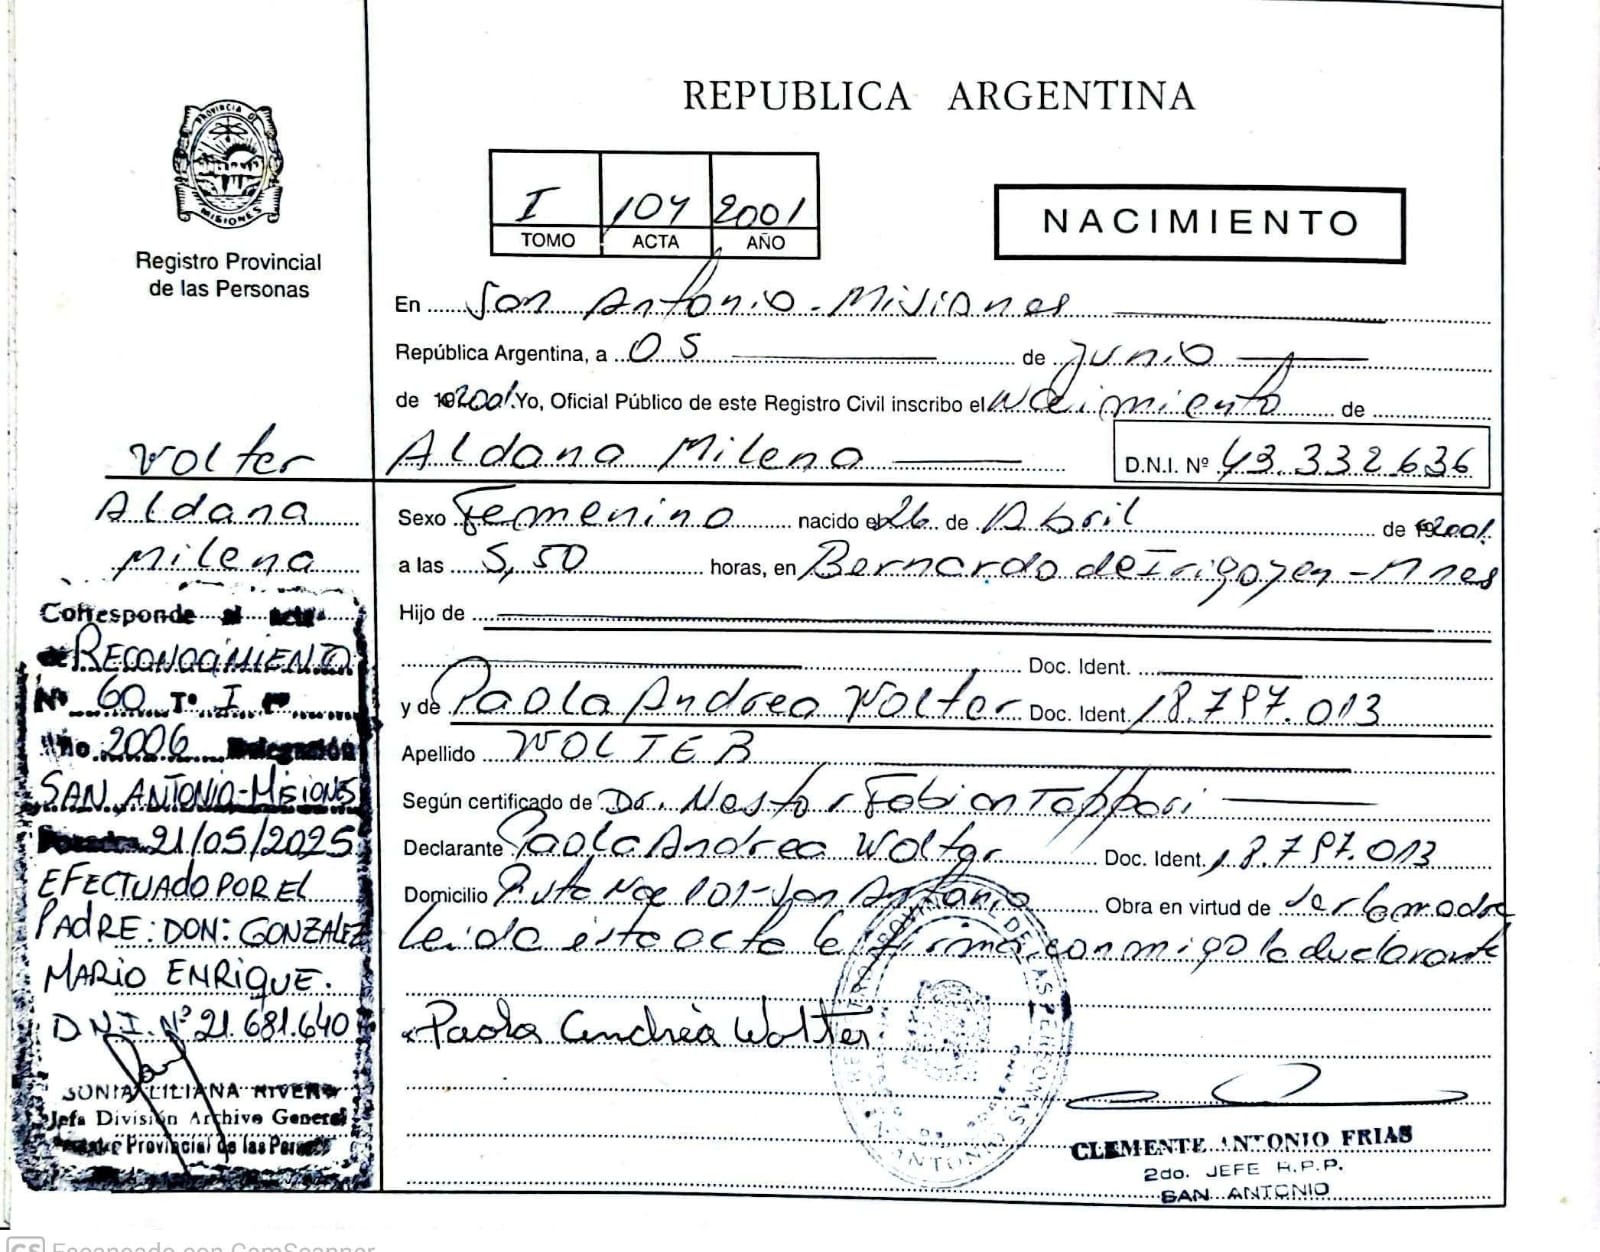 REPUBLICA ARGENTINA
PROVINCIA DE
MISIONES
Registro Provincial
de las Personas
I 104 2001
TOMO ACTA AÑO
NACIMIENTO
En San Antonio - Misiones
República Argentina, a 05 de Junio
de 2001. Yo, Oficial Público de este Registro Civil inscribo el Nacimiento de
Wolter Aldana Milena D.N.I. Nº 43.332.636
Aldana
Milena
Sexo Femenino nacido el 26 de Abril de 2001.
a las 5,50 horas, en Bernardo de Irigoyen - Mnes
Hijo de
Doc. Ident.
y de Paola Andrea Wolter Doc. Ident. 18.797.013
Apellido WOLTER
Según certificado de Dr. Nestor Fabian Tappari
Declarante Paola Andrea Wolter Doc. Ident. 18.797.013
Domicilio Ruta Nac 101 - San Antonio Obra en virtud de ser la madre
Leida este acta la firma conmigo la declarante
Paola Andréa Wolter
CLEMENTE ANTONIO FRIAS
2do. JEFE R.P.P.
SAN ANTONIO
Corresponde al acta
de RECONOCIMIENTO
Nº 60 Tº I
Año 2006 Delegación
SAN ANTONIO - Misiones
21/05/2025
EFECTUADO POR EL
PADRE: DON: GONZALEZ
MARIO ENRIQUE.
D.N.I. Nº 21.681.640
SONIA LILIANA RIVERO
Jefa División Archivo General
Registro Provincial de las Personas
CS Escaneado con CamScanner